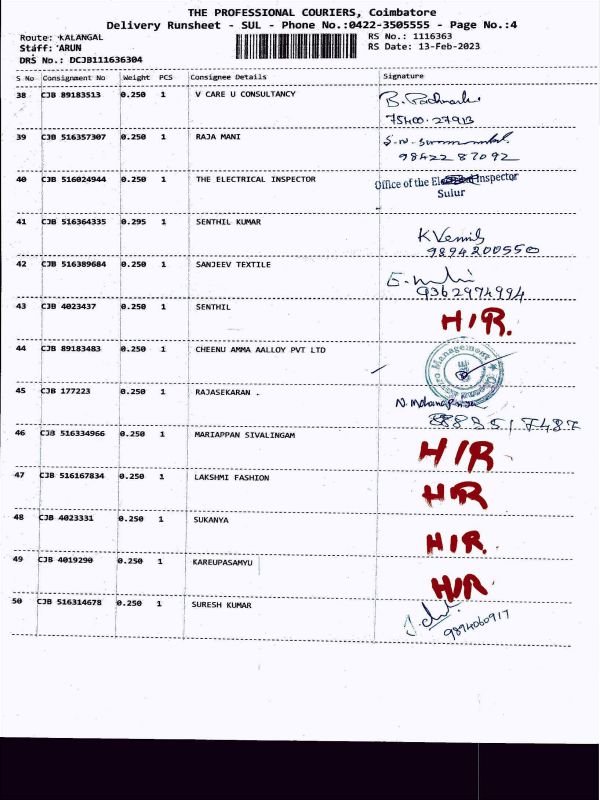 THE PROFESSIONAL COURIERS, Coimbatore
Delivery Runsheet - SUL - Phone No.:0422-3505555 - Page No.:4
Route: KALANGAL
Staff: ARUN
DRS No.: DCJB111636304
RS No.: 1116363
RS Date: 13-Feb-2023
S No Consignment No Weight PCS Consignee Details Signature
38 CJB 89183513 0.250 1 V CARE U CONSULTANCY
39 CJB 516357307 0.250 1 RAJA MANI
98422 87092
40 CJB 516024944 0.250 1 THE ELECTRICAL INSPECTOR Office of the Electrical Inspector
Sulur
41 CJB 516364335 0.295 1 SENTHIL KUMAR
9894200550
42 CJB 516389684 0.250 1 SANJEEV TEXTILE
9362974994
43 CJB 4023437 0.250 1 SENTHIL H/R.
44 CJB 89183483 0.250 1 CHEENU AMMA AALLOY PVT LTD Management
45 CJB 177223 0.250 1 RAJASEKARAN .
46 CJB 516334966 0.250 1 MARIAPPAN SIVALINGAM H/R
47 CJB 516167834 0.250 1 LAKSHMI FASHION H/R
48 CJB 4023331 0.250 1 SUKANYA H/R.
49 CJB 4019290 0.250 1 KAREUPASAMYU H/R
50 CJB 516314678 0.250 1 SURESH KUMAR
9894060917